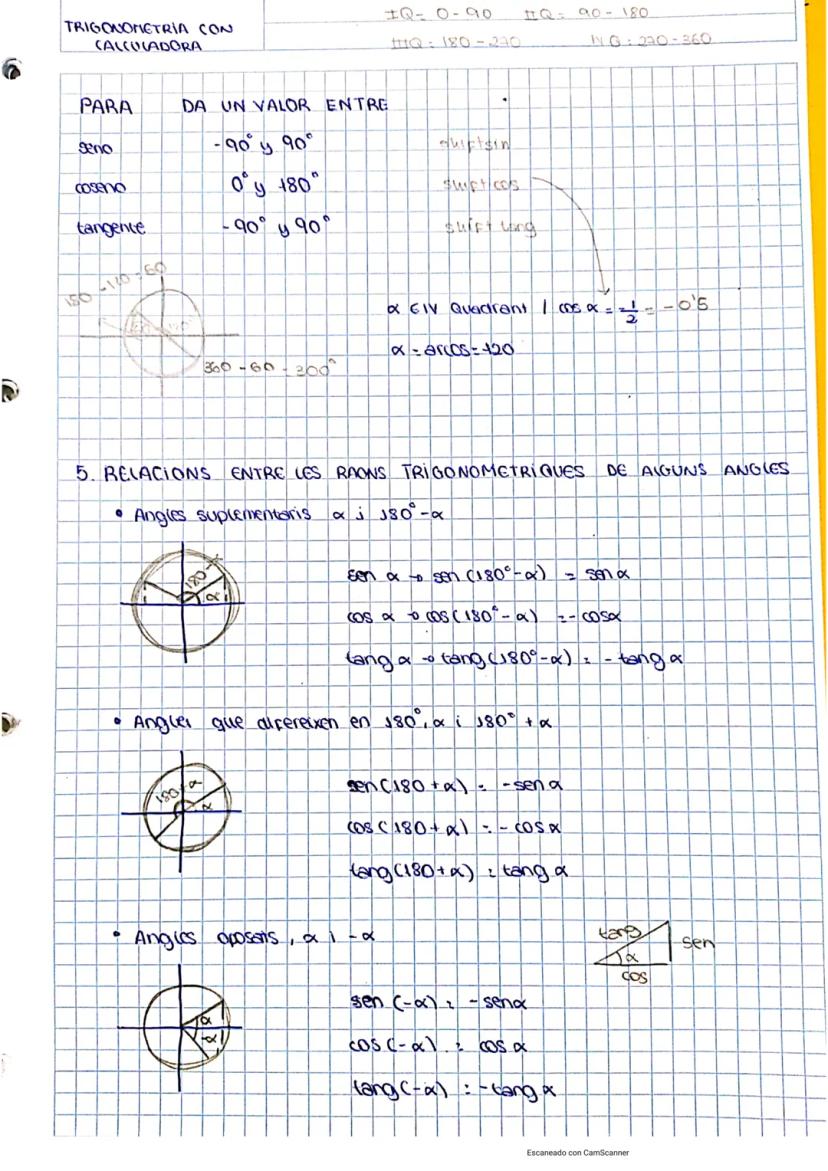 TRIGONOMETRÍA CON
CALCULADORA
IQ = 0-90 IIQ = 90-180
IIIQ : 180-270 IVQ : 270-360
PARA DA UN VALOR ENTRE
seno -90° y 90° shift sin
coseno 0° y 180° shift cos
tangente -90° y 90° shift tang
180-120=60
α ∈ IV Quadrant / cos α = -1/2 = -0'5
360-60=300°
α = arcos = 120
5. RELACIONS ENTRE LES RAONS TRIGONOMETRIQUES DE ALGUNS ANGLES
• Angles suplementaris α i 180°-α
180-α
α
sen α → sen (180°-α) = sen α
cos α → cos (180°-α) = -cosα
tang α → tang (180°-α) = - tang α
• Angles que difereixen en 180°, α i 180° + α
180+α
α
sen (180+α) = -sen α
cos (180+α) = - cos α
tang (180+α) = tang α
• Angles oposats, α i -α
tang
sen
α
cos
α
-α
sen (-α) = -senα
cos (-α) = cos α
tang (-α) = -tang α
Escaneado con CamScanner